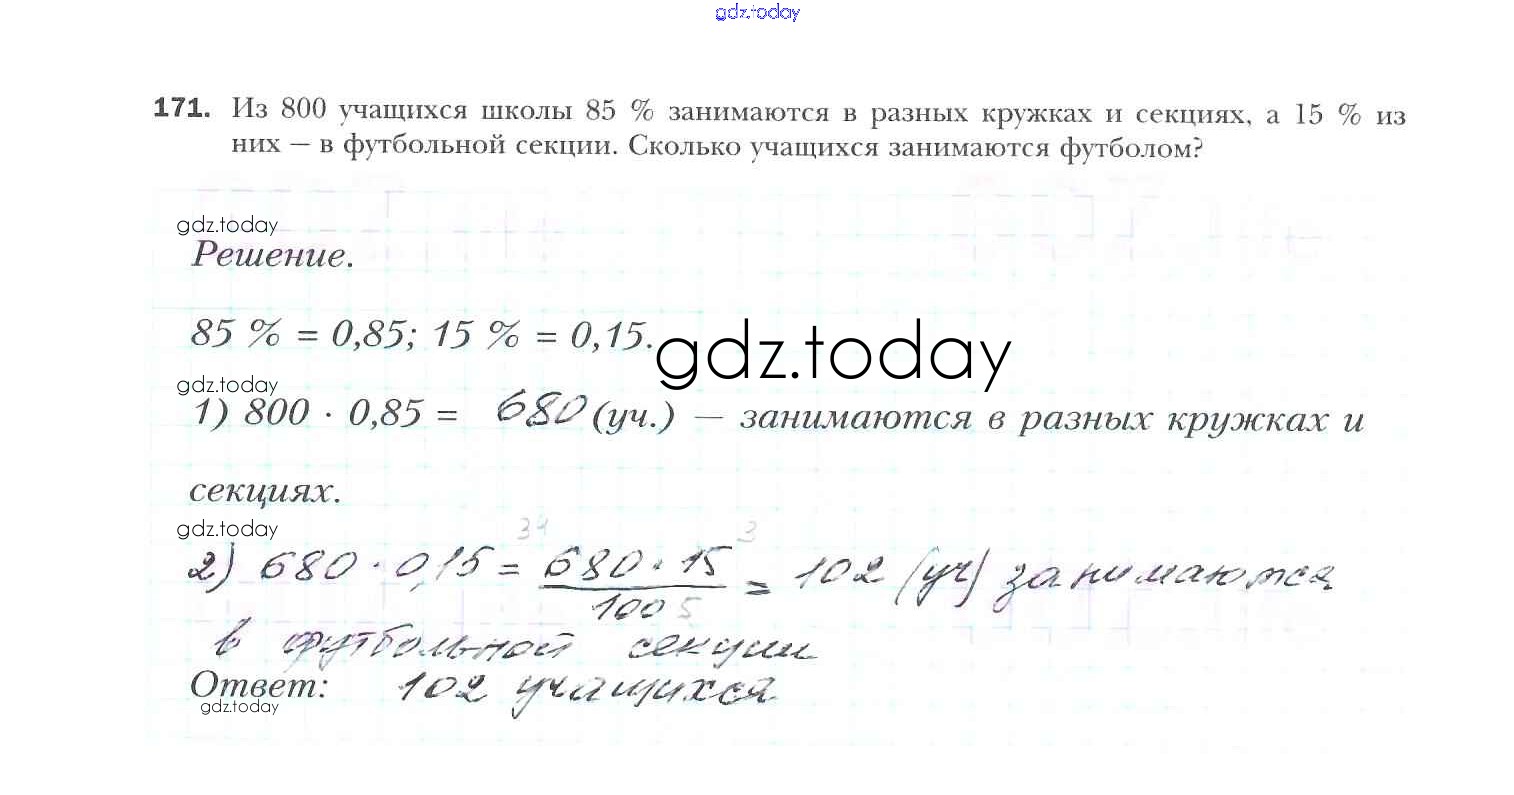 gdz.today
171. Из 800 учащихся школы 85 % занимаются в разных кружках и секциях, а 15 % из
них – в футбольной секции. Сколько учащихся занимаются футболом?
gdz.today
Решение.
85 % = 0,85; 15 % = 0,15.
gdz.today
gdz.today
1) 800 · 0,85 = 680 (уч.) – занимаются в разных кружках и
секциях.
gdz.today
34 3
2) 680 · 0,15 = 680 · 15 / 100 5 = 102 (уч) занимаются
в футбольной секции
Ответ: 102 учащихся
gdz.today